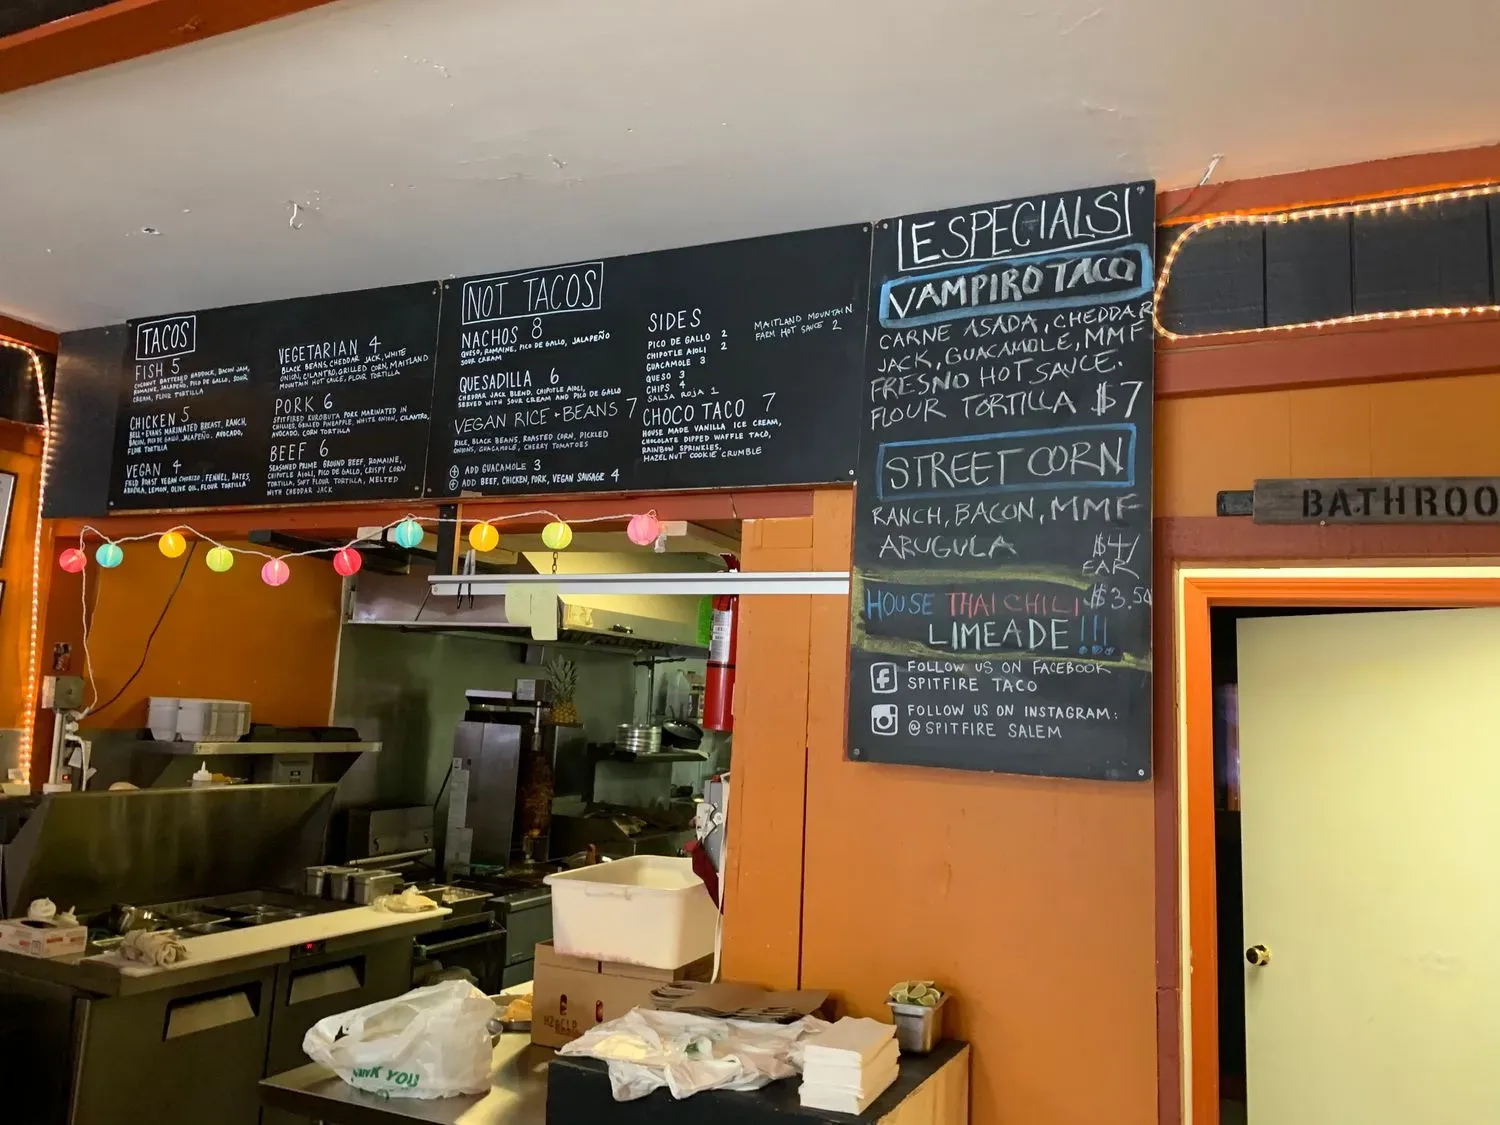 TACOS
FISH 5
COCONUT BATTERED HADDOCK, BACON JAM,
ROMAINE, JALAPEÑO, PICO DE GALLO, SOUR
CREAM, FLOUR TORTILLA
CHICKEN 5
BELL + EVANS MARINATED BREAST, RANCH,
BACON, PICO DE GALLO, JALAPEÑO, AVOCADO,
FLOUR TORTILLA
VEGAN 4
FIELD ROAST VEGAN CHORIZO, FENNEL, DATES,
ARUGULA, LEMON, OLIVE OIL, FLOUR TORTILLA
VEGETARIAN 4
BLACK BEANS, CHEDDAR JACK, WHITE
ONION, CILANTRO, GRILLED CORN, MAITLAND
MOUNTAIN HOT SAUCE, FLOUR TORTILLA
PORK 6
SPITFIRED KUROBUTA PORK MARINATED IN
CHILIES, GRILLED PINEAPPLE, WHITE ONION, CILANTRO,
AVOCADO, CORN TORTILLA
BEEF 6
SEASONED PRIME GROUND BEEF, ROMAINE,
CHIPOTLE AIOLI, PICO DE GALLO, CRISPY CORN
TORTILLA, SOFT FLOUR TORTILLA, MELTED
WITH CHEDDAR JACK
NOT TACOS
NACHOS 8
QUESO, ROMAINE, PICO DE GALLO, JALAPEÑO
SOUR CREAM
QUESADILLA 6
CHEDDAR JACK BLEND, CHIPOTLE AIOLI,
SERVED WITH SOUR CREAM AND PICO DE GALLO
VEGAN RICE + BEANS 7
RICE, BLACK BEANS, ROASTED CORN, PICKLED
ONIONS, GUACAMOLE, CHERRY TOMATOES
+ ADD GUACAMOLE 3
+ ADD BEEF, CHICKEN, PORK, VEGAN SAUSAGE 4
SIDES
PICO DE GALLO 2
CHIPOTLE AIOLI 2
GUACAMOLE 3
QUESO 3
CHIPS 4
SALSA ROJA 1
MAITLAND MOUNTAIN
FARM HOT SAUCE 2
CHOCO TACO 7
HOUSE MADE VANILLA ICE CREAM,
CHOCOLATE DIPPED WAFFLE TACO,
RAINBOW SPRINKLES,
HAZELNUT COOKIE CRUMBLE
ESPECIALS
VAMPIRO TACO
CARNE ASADA, CHEDDAR
JACK, GUACAMOLE, MMF
FRESNO HOT SAUCE.
FLOUR TORTILLA $7
STREET CORN
RANCH, BACON, MMF
ARUGULA $4/
EAR
HOUSE THAI CHILI $3.50
LIMEADE!!!
FOLLOW US ON FACEBOOK
SPITFIRE TACO
FOLLOW US ON INSTAGRAM:
@SPITFIRE SALEM
BATHROO
THANK YOU